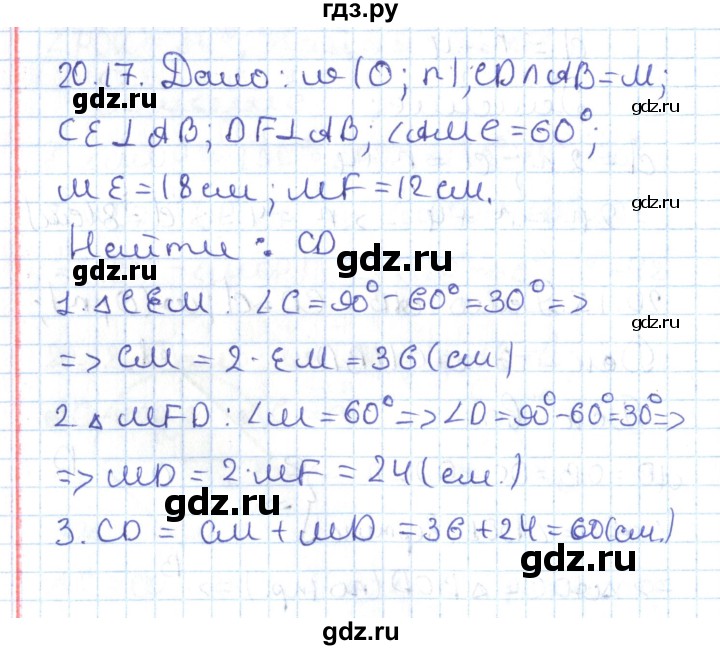 гдз.ру
20.17. Дано: w (O; r), CD∩AB=M;
CE⊥AB; DF⊥AB; ∠AMC=60°;
ME=18см; MF=12см.
Найти: CD
1. △CEM: ∠C=90°-60°=30°=>
=> CM=2·EM=36(см)
2. △MFD: ∠M=60°=>∠D=90°-60°=30°=>
=> MD=2·MF=24(см.)
3. CD = CM+MD =36+24=60(см.)
gdz.ru
gdz.ru
gdz.ru
gdz.ru
gdz.ru
gdz.ru
gdz.ru
gdz.ru
gdz.ru
gdz.ru
gdz.ru